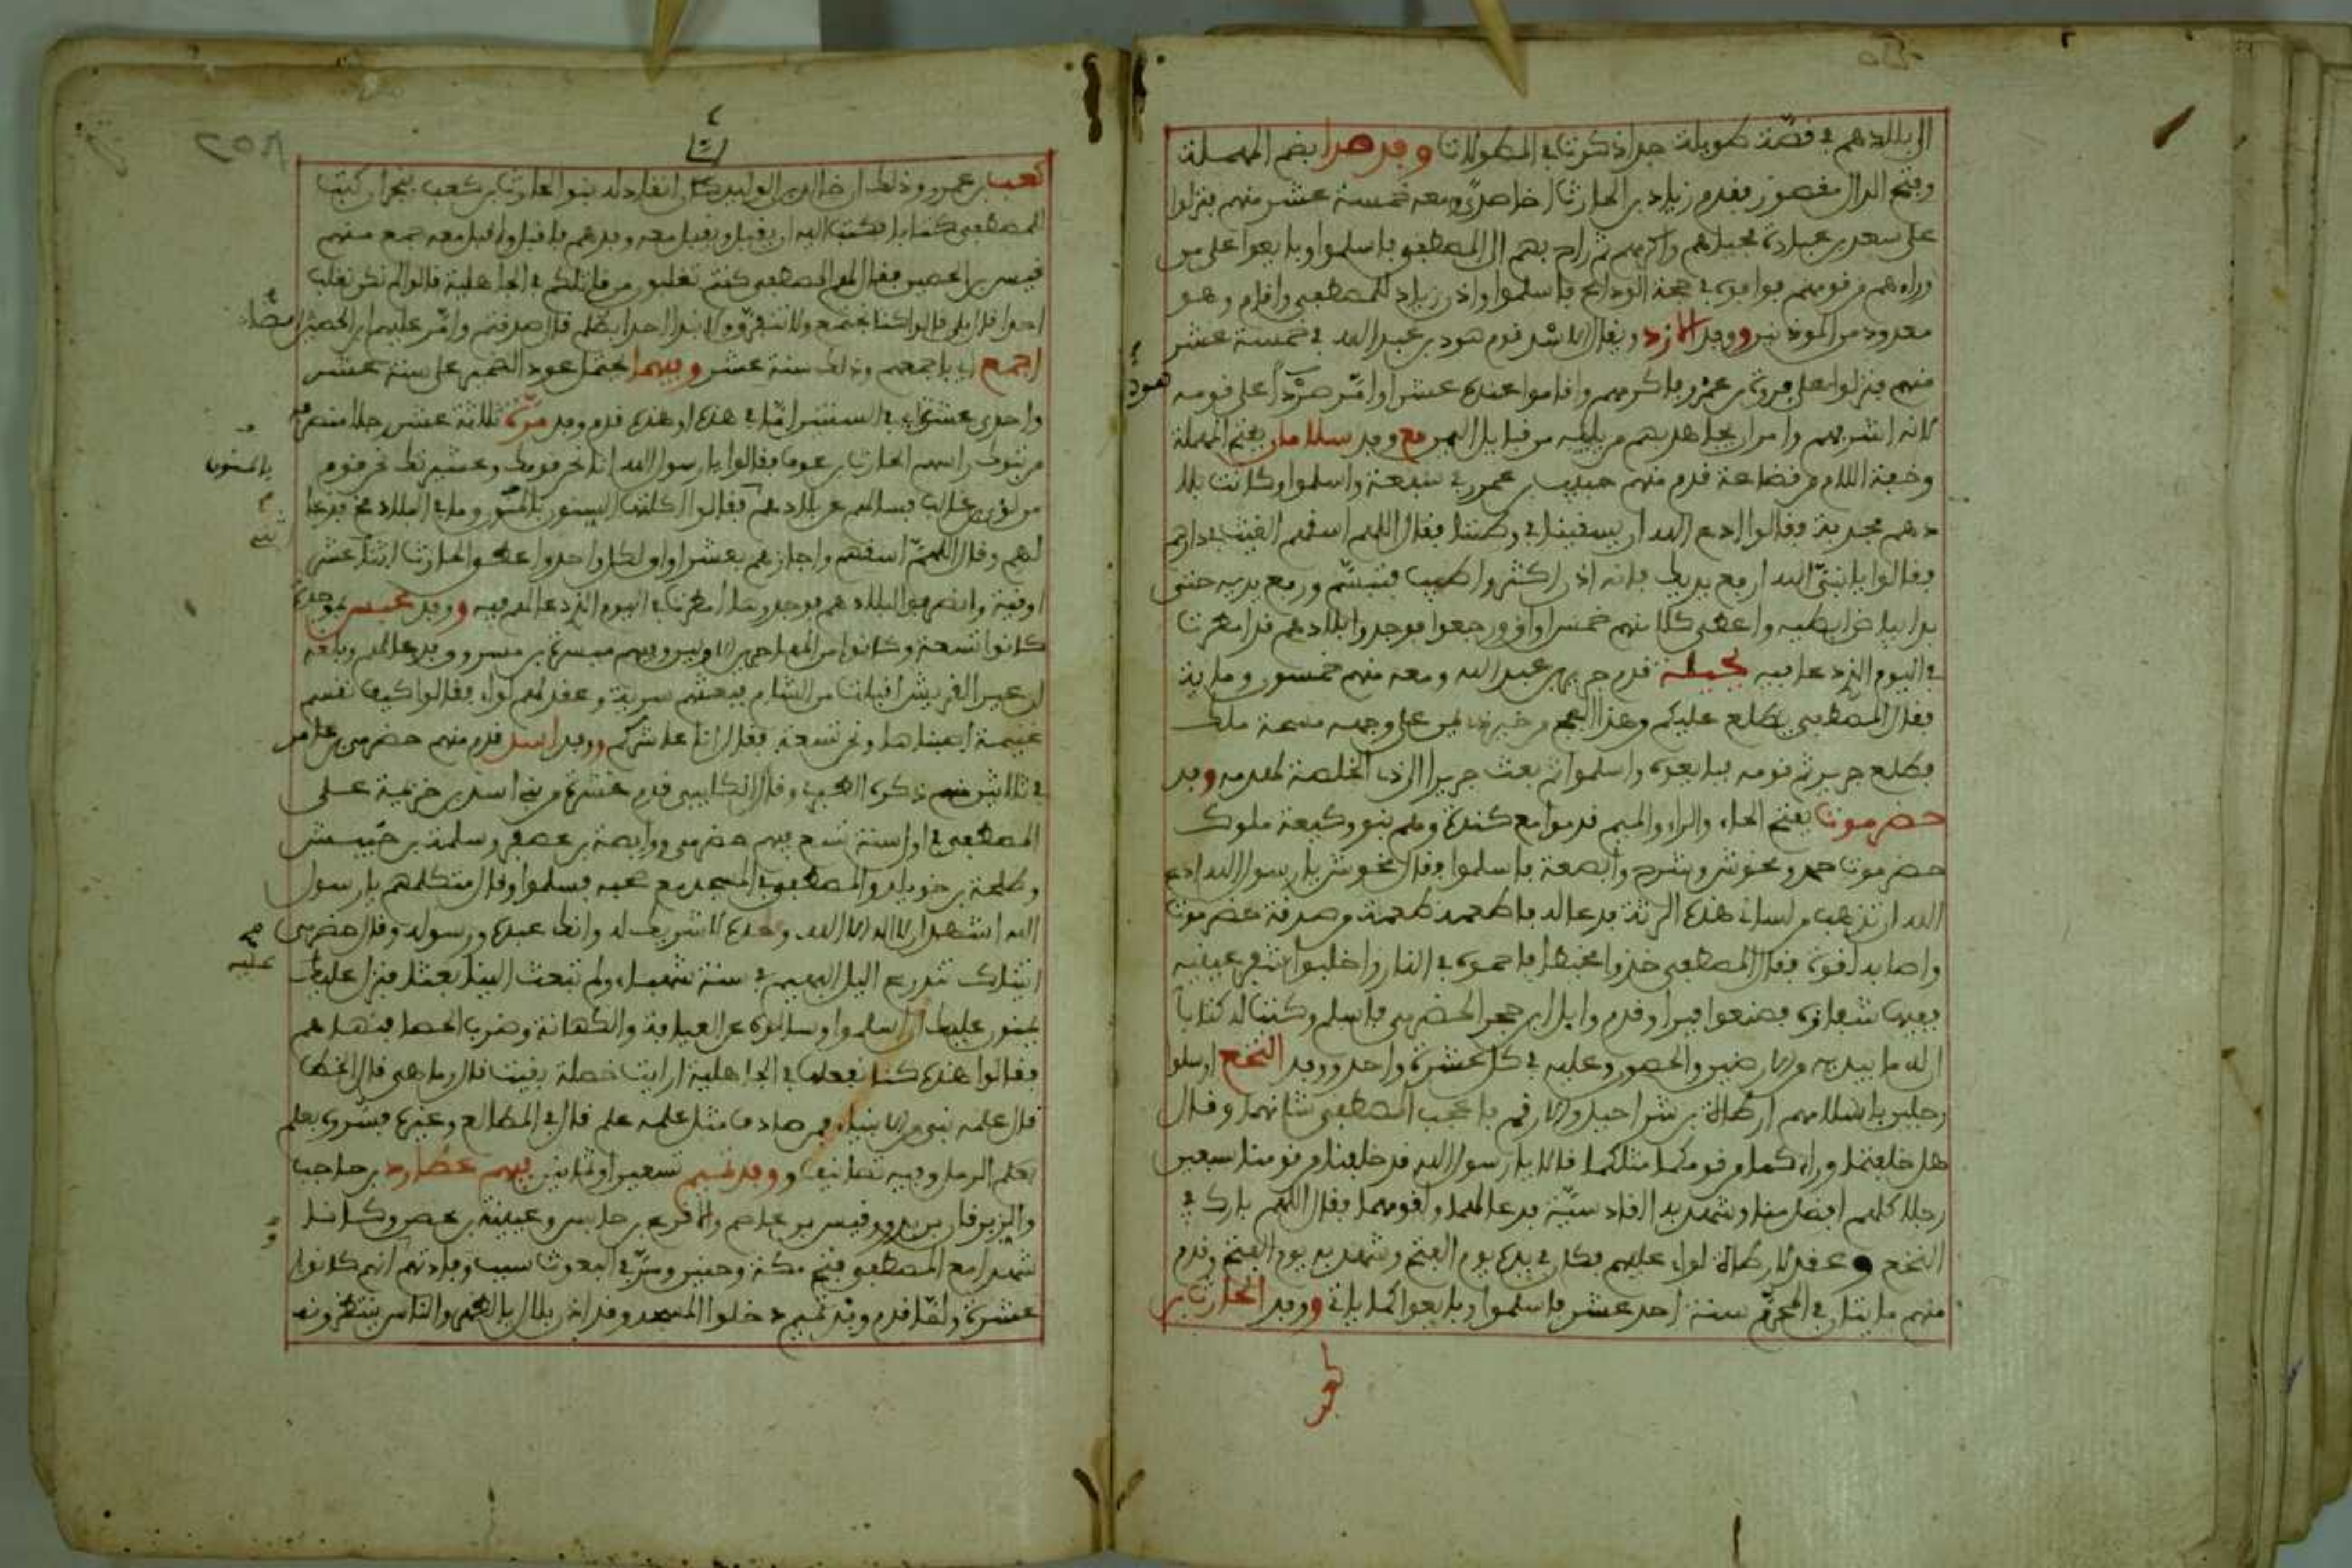 الى بلادهم في قصة طويلة جدا ذكرت في المطولات وفد صدا بضم المهملة
وفتح الدال مقصور فقدم زياد بن الحارث الصدائي ومعه خمسة عشر منهم فنزلوا
على سعد بن عبادة فحباهم واكرمهم ثم راح بهم الى المصطفى فاسلموا وبايعوا على من
وراءهم من قومهم فوافوه في حجة الوداع فاسلموا واذن زياد للمصطفى واقام وهو
معدود من الموذنين ووفد الازد ويقال الاسد قدم هود بن عبد الله في خمسة عشر
منهم فنزلوا على فروة بن عمرو فاكرمهم واقاموا عنده عشرا وامر صرد على قومه
لانه اشربهم وامر ان يجاهد بهم من يليه من قبايل اليمن مع وفد سلامان بفتح المهملة
وخفة اللام من قضاعة قدم منهم حبيب بن عمرو في سبعة واسلموا وكانت بلا
دهم مجدبة فقالوا ادع الله ان يسقينا في وطننا فقال اللهم اسقهم الغيث في دارهم
فقالوا يا نبي الله ارفع يديك فانه اذن اكثر واطيب فتبسم ورفع يديه حتى
بدا بياض ابطيه واعطى كلا منهم خمس اواق ورجعوا فوجدوا بلادهم قد امطرت
في اليوم الذي دعا فيه بجيلة قدم جرير بن عبد الله ومعه منهم خمسون وماية
فقال المصطفى يطلع عليكم من هذا الفج من خير ذي يمن على وجهه مسحة ملك
فطلع جرير ثم قومه فبايعوه واسلموا ثم بعث جريرا الى ذي الخلصة لهدمه وفد
حضرموت بفتح الحاء والراء والميم قدموا مع كندة وهم بنو وكيعة ملوك
حضرموت حمد ومخوش ومشرح وابضعة فاسلموا وقال مخوش يا رسول الله ادع
الله ان تذهب من لساني هذه الرتة فدعا له فاطعمه طعمة من صدقة حضرموت
واصابه لقوة فقال المصطفى خذوا مخيطا فاحموه في النار واقلبوا شفر عينيه
ففيها شفاؤه فصنعوا فبرا وقدم وايل ابن حجر الحضرمي فاسلم وكتب له كتابا
ان له ما بيديه من الارضين والحصون وعليه في كل عشرة واحد ووفد النخع ارسلوا
رجلين باسلامهم ارطاة بن شراحيل والارقم فاعجب المصطفى شانهما وقال
هل خلفتما وراءكما من قومكما مثلكما قالا يا رسول الله قد خلفنا من قومنا سبعين
رجلا كلهم افضل منا وشهد به القادسية فدعا لهما ولقومهما فقال اللهم بارك في
النخع وعقد لارطاة لواء عليهم فكان في يده يوم الفتح وشهد به يوم الفتح وقدم
منهم مايتان في المحرم سنة احد عشر فاسلموا وبايعوا كما ياتي ووفد الحارث بن
كعب
هود
كعب بن عمرو وذلك ان خالد بن الوليد كان انقاد له بنوا الحارث بن كعب بنجران كتب
للمصطفى كتابا فكتب اليه ان يقبل ويقبل معه وفدهم فاقبل واقبل معه جمع منهم
قيس بن الحصين فقال لهم المصطفى بم كنتم تغلبون من قاتلكم في الجاهلية قالوا لم نكن نغلب
احدا قال بلى قالوا كنا نجتمع ولا نتفرق ولا نبدا احدا بظلم قال صدقتم وامر عليهم ابن الحصين
اجمع اي باجمعهم وذلك سنة عشر وفيها يحتمل عود الضمير على سنة عشر
واحدى عشرة اي في السنتين اما في هذه او هذه قدم وفد مرة ثلاثة عشر رجلا منهم
من تبوك راسهم الحارث بن عوف فقالوا يا رسول الله انا نحن قومك وعشيرتك نحن قوم
من لؤي بن غالب فسالهم عن بلادهم فقالوا
لهم وقال اللهم اسقهم واجازهم بعشر اواق لكل واحد واعطى الحارث اثنتا عشر
اوقية وانصرفوا لبلادهم فوجدوها امطرت في اليوم الذي دعا لهم فيه ووفد عبس بموحدة
كانوا تسعة وكانوا من المهاجرين الاولين وفيهم ميسرة بن مسروق ودعا لهم وبلغه
ان عيرا لقريش اقبلت من الشام فبعثهم سرية وعقد لهم لواء فقالوا كيف نقسم
غنيمة اصبناها ونحن تسعة فقال انا عاشركم ووفد اسد قدم منهم حضرمي بن عامر
في ثلاثين منهم وقال الكلبي قدم عشرة من بني اسد بن خزيمة على
المصطفى في اول سنة تسع فيهم حضرمي ووابصة بن معبد وسلمة بن حبيش
وطلحة بن خويلد والمصطفى في المسجد مع صحبه فسلموا وقال متكلمهم يا رسول
الله اشهد ان لا اله الا الله وحده لا شريك له وانك عبده ورسوله وقال حضرمي
اتيناك نتدرع الليل البهيم في سنة شهباء ولم تبعث الينا بعثا فنزل عليك
يمنون عليك ان اسلموا وسالوه عن العيافة والكهانة وضرب الحصا فنهاهم
فقالوا هذه كنا نفعلها في الجاهلية ارايت خصلة بقيت قال وما هي قال الخط
قال علمه نبي من الانبياء فمن صادف مثل علمه علم قال في المطالع وغيرها فسروه بعلم
بعلم الرمل وفيه تصانيف ووفد تميم تسعين او ثمانين فيهم عطارد بن حاجب
والزبرقان بن بدر وقيس بن عاصم والاقرع بن حابس وعيينة بن حصن وكانا
شهدا مع المصطفى فتح مكة وحنين ومر في البعوث سبب وفادتهم انهم كانوا
عشرة ولما قدم وفد تميم دخلوا المسجد وقد اذن بلال بالظهر والناس ينتظرونه